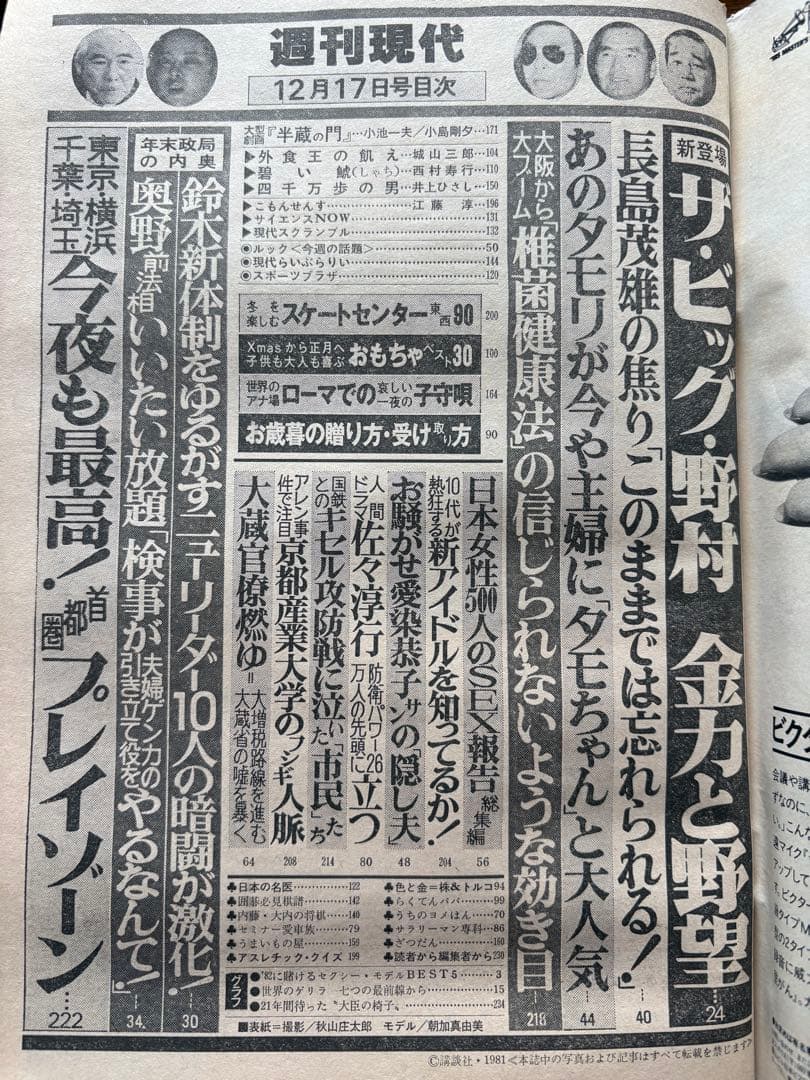 週刊現代
12月17日号目次
新登場 ザ・ビッグ・野村 金力と野望……24
長島茂雄の焦り「このままでは忘れられる!」……40
あのタモリが今や主婦に「タモちゃん」と大人気……44
大阪から大ブーム「椎茸健康法」の信じられないような効き目……218
大型劇画『半蔵の門』…小池一夫/小島剛夕…171
▶外食王の飢え…城山三郎…104
▶碧い鯱(しゃち)…西村寿行…110
▶四千万歩の男…井上ひさし…150
▶こもんせんす…江藤 淳…196
▶サイエンスNOW…131
▶現代スクランブル…132
◉ルック<今週の話題>…50
◉現代らいぶらりい…144
◉スポーツプラザ…120
冬を楽しむ スケートセンター東西90 200
Xmasから正月へ 子供も大人も喜ぶ おもちゃベスト30 100
世界のアナ場 ローマでの哀しい一夜の子守唄 164
お歳暮の贈り方・受け取り方 90
日本女性500人のSEX報告 総集編 56
10代が熱狂する 新アイドルを知ってるか! 204
お騒がせ愛染恭子サンの「隠し夫」 48
人間ドラマ 佐々淳行 防衛パワー26万人の先頭に立つ 80
国鉄とのキセル攻防戦に泣いた「市民」たち 214
アレン事件で注目 京都産業大学のフシギ人脈 208
大蔵官僚燃ゆ=大増税路線を進む大蔵省の嘘を暴く 64
♣色と金=株&トルコ94
♣らくてんパパ…99
♣うちのヨメはん…70
♣サラリーマン専科…86
♣ざつだん…160
♣読者から編集者から230
♣日本の名医…122
♣囲碁必見棋譜…142
♣内藤・大内の将棋…140
♣セミナー愛車族…79
♣うまいもの屋…159
♣アスレチック・クイズ199
グラフ
●'82に賭けるセクシー・モデルBEST5…3
●世界のゲリラ 七つの最前線から…15
●21年間待った"大臣の椅子"…234
■表紙=撮影/秋山庄太郎 モデル/朝加真由美
年末政局の内奥
鈴木新体制をゆるがすニューリーダー10人の暗闘が激化!……30
奥野前法相いいたい放題「検事が夫婦ゲンカの引き立て役をやるなんて!」……34
東京・横浜 千葉・埼玉 今夜も最高! 首都圏プレイゾーン……222
©講談社・1981<本誌中の写真および記事はすべて転載を禁じます>
ビク
会議や講
ずなのに、
い。こんな